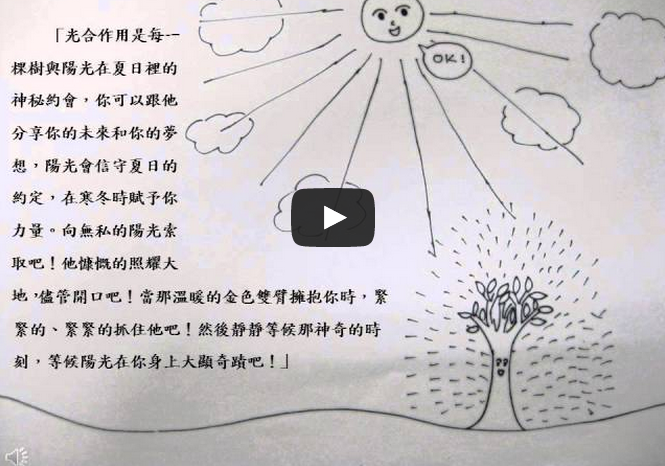 「光合作用是每一
棵樹與陽光在夏日裡的
神秘約會，你可以跟他
分享你的未來和你的夢
想，陽光會信守夏日的
約定，在寒冬時賦予你
力量。向無私的陽光索
取吧！他慷慨的照耀大
地，儘管開口吧！當那溫暖的金色雙臂擁抱你時，緊
緊的、緊緊的抓住他吧！然後靜靜等候那神奇的時
刻，等候陽光在你身上大顯奇蹟吧！」
OK!